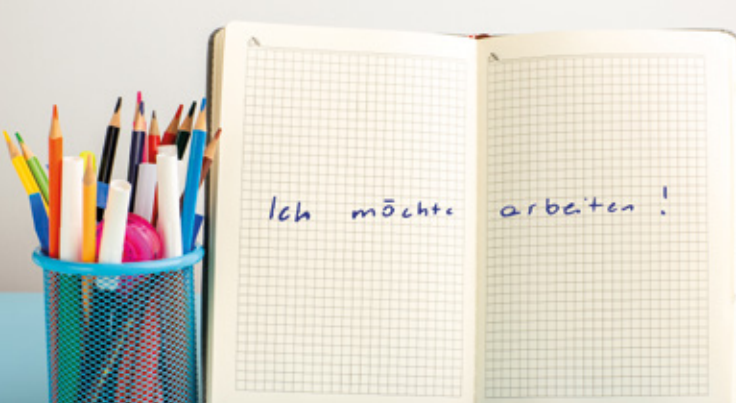 Ich möchte arbeiten!